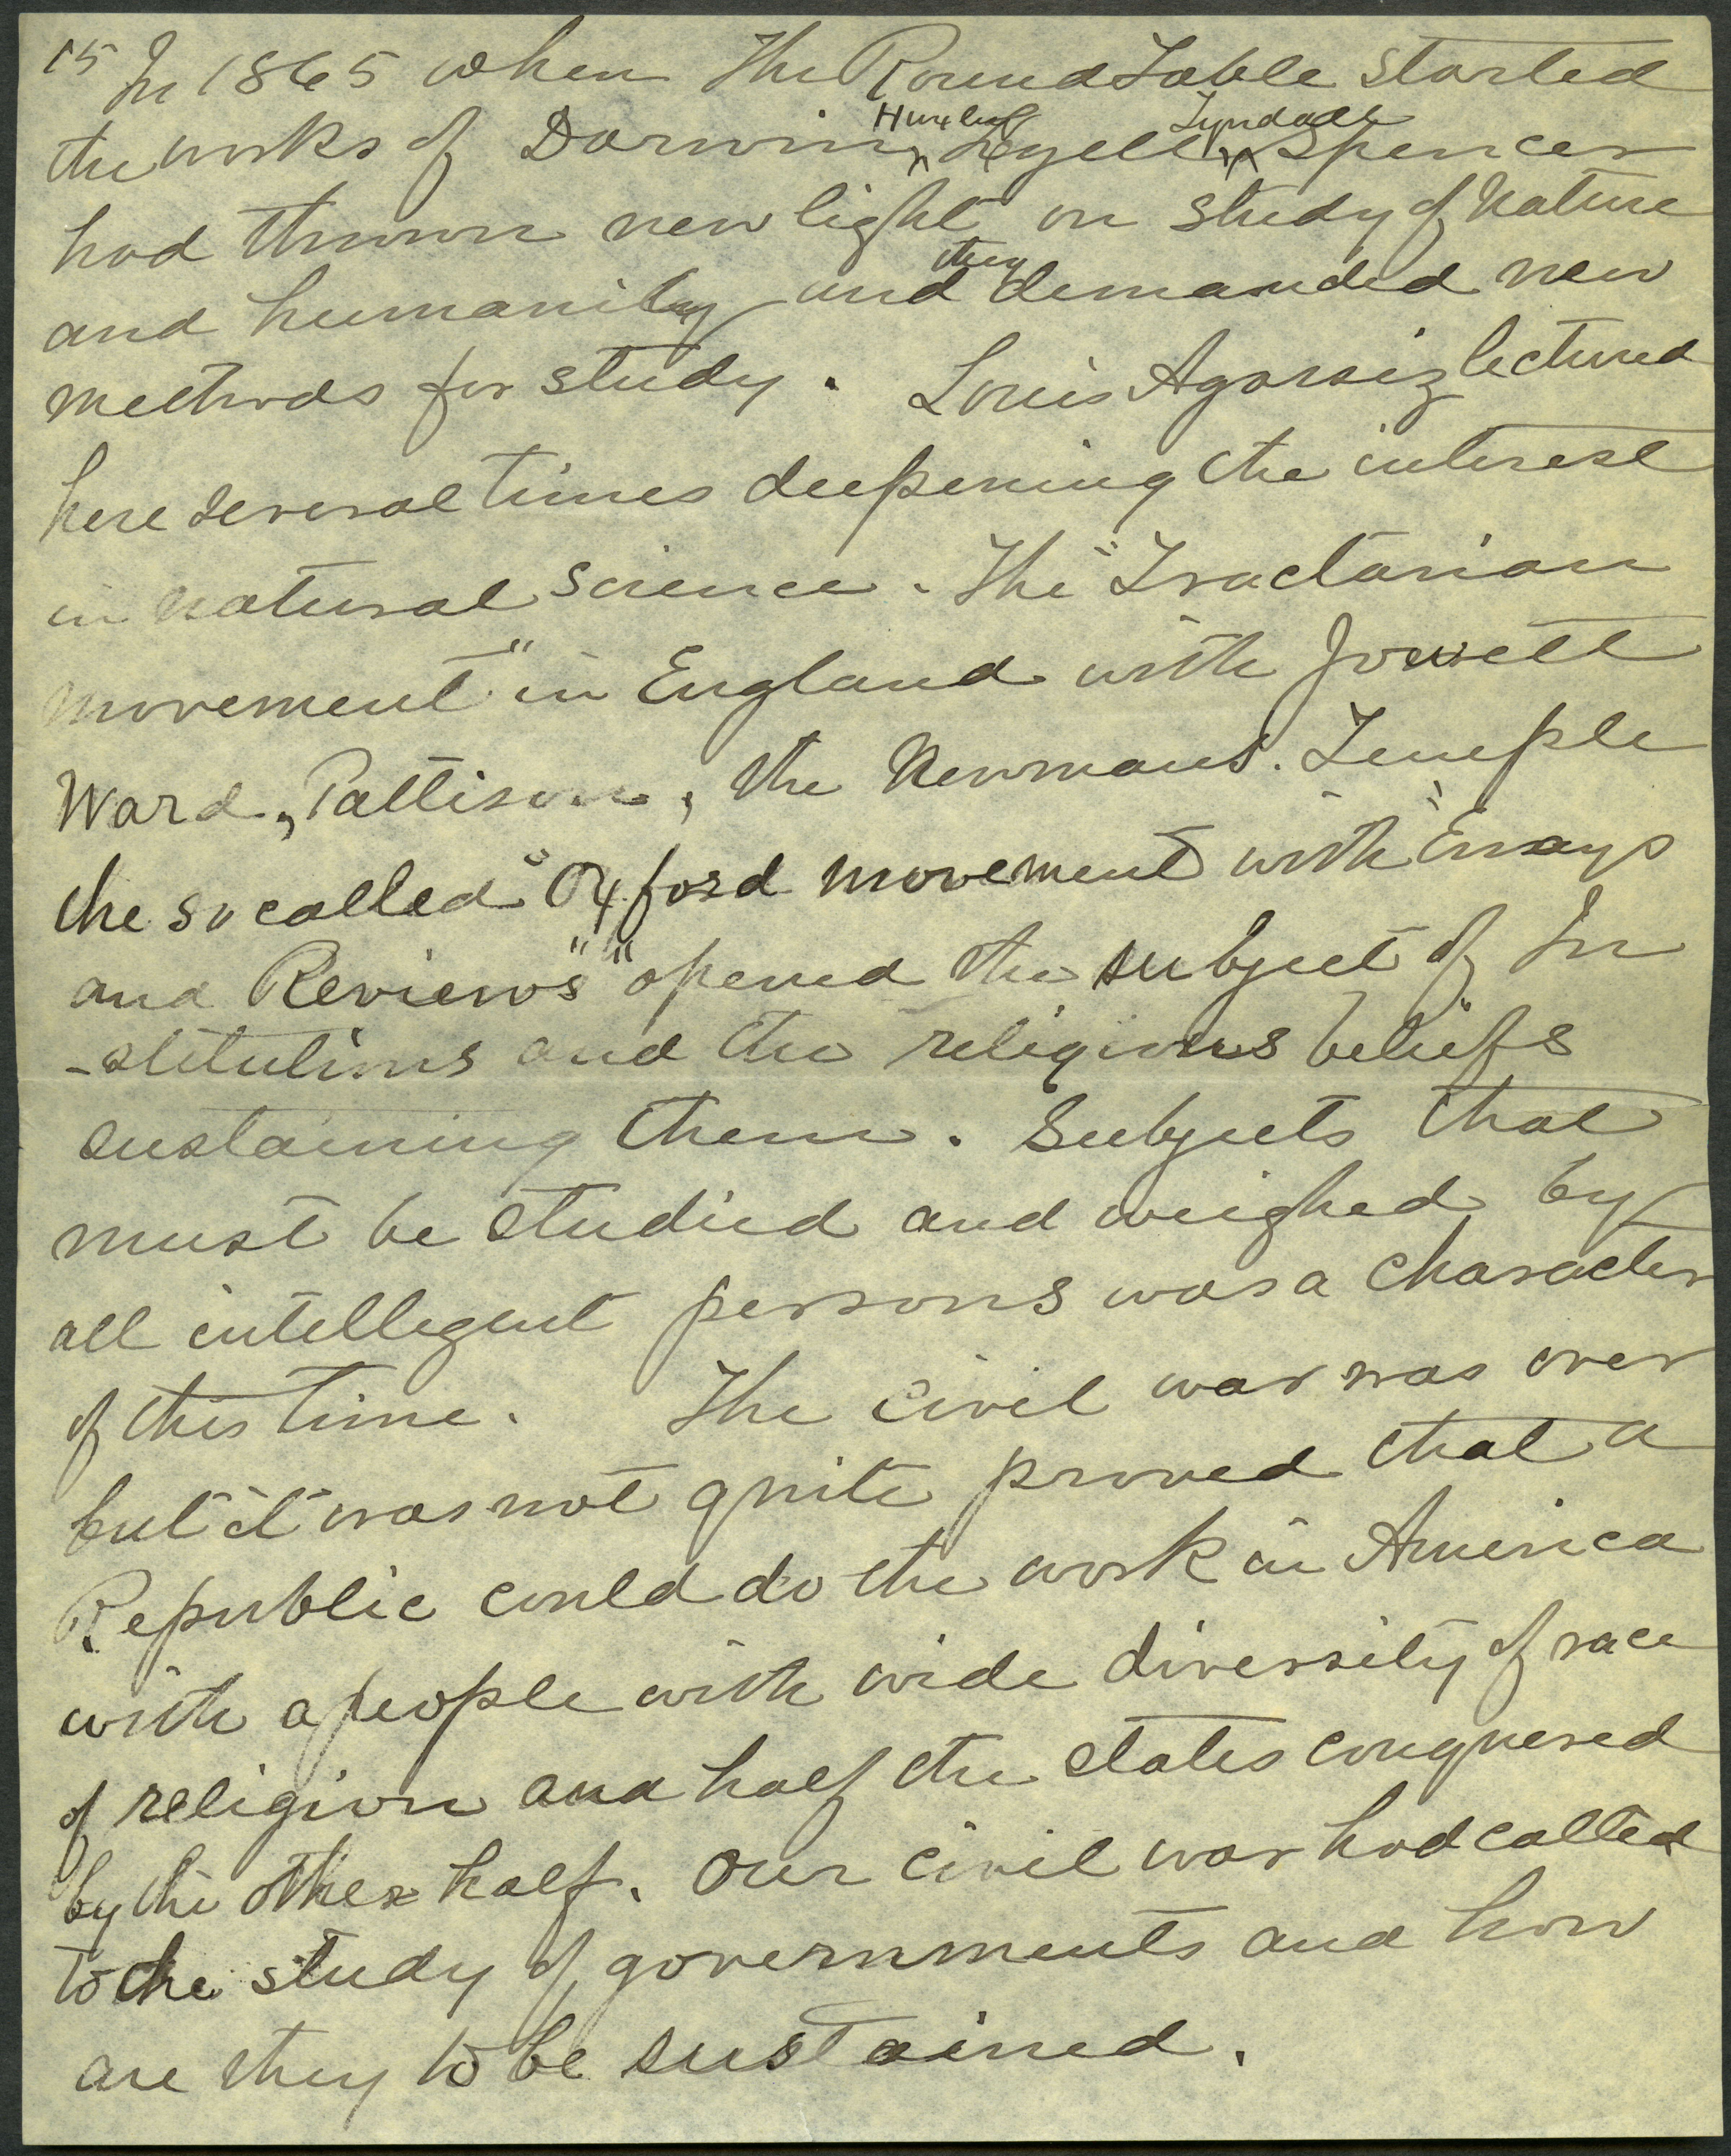 15 In 1865 when The Round Table started
the works of Darwin, Huxley Lyell, Tyndall Spencer
had thrown new light on study of Nature
and humanity and they demanded new
methods for study. Louis Agassiz lectured
here several times deepening the interest
in natural science. The "Tractarian
movement" in England with Jowett
Ward, Pattison, the Newmans. Temple
the so called "Oxford movement with "Essays
and Reviews" " opened the subject of In
-stitutions and the religious beliefs
sustaining them. Subjects that
must be studied and weighed by
all intellegent persons was a character
of this time. The civil war was over
but it was not quite proved that a
Republic could do the work in America
with a people with wide diversity of race
of religion and half the states conquered
by the other half. Our civil war had called
to the study of governments and how
are they to be sustained.